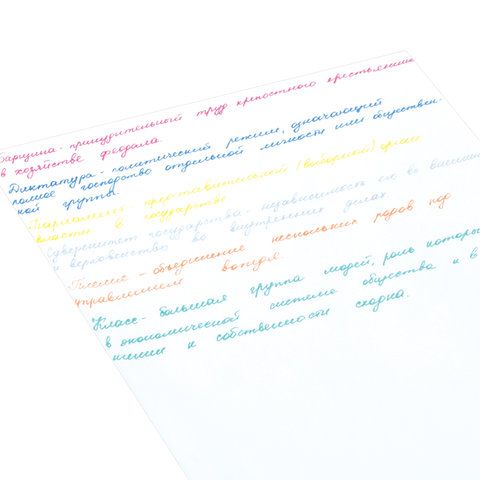 Барщина - принудительный труд крепостного крестьянина
в хозяйстве феодала.
Диктатура - политический режим, означающий
полное господство отдельной личности или обществен-
ной группы.
Парламент - представительный (выборный) орган
власти в государстве
Суверенитет государства - независимость его во внешних
и верховенство во внутренних делах.
Племя - объединение нескольких родов под
управлением вождя.
Класс - большая группа людей, роль которой
в экономической системе общества и в
шении к собственности сходна.